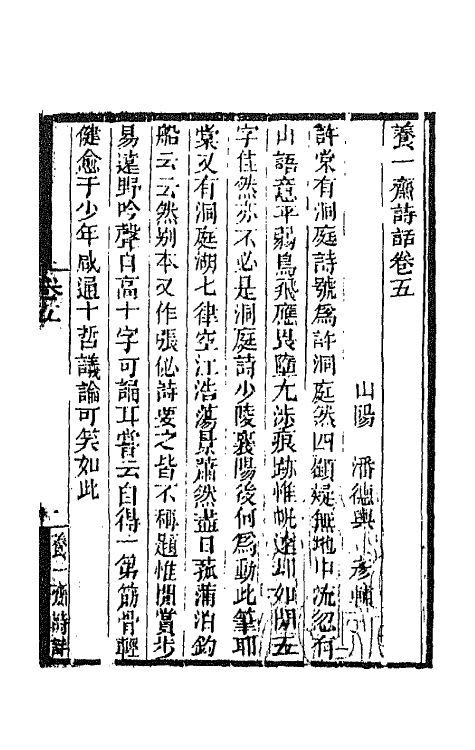 養一齋詩話卷五
山陽 潘德輿 彥輔
許棠有洞庭詩號爲許洞庭然四顧疑無地中流忽有
山語意平弱鳥飛應畏墮尤涉痕跡惟帆遠却如閒五
字佳然亦不必是洞庭詩少陵襄陽後何爲動此筆耶
棠又有洞庭湖七律空江浩蕩景蕭然盡日菰蒲泊釣
船云云然別本又作張佖詩要之皆不稱題惟閒賞步
易遠野吟聲自高十字可誦耳嘗云自得一第筋骨輕
健愈于少年咸通十哲議論可笑如此
卷五
一
養一齋詩話